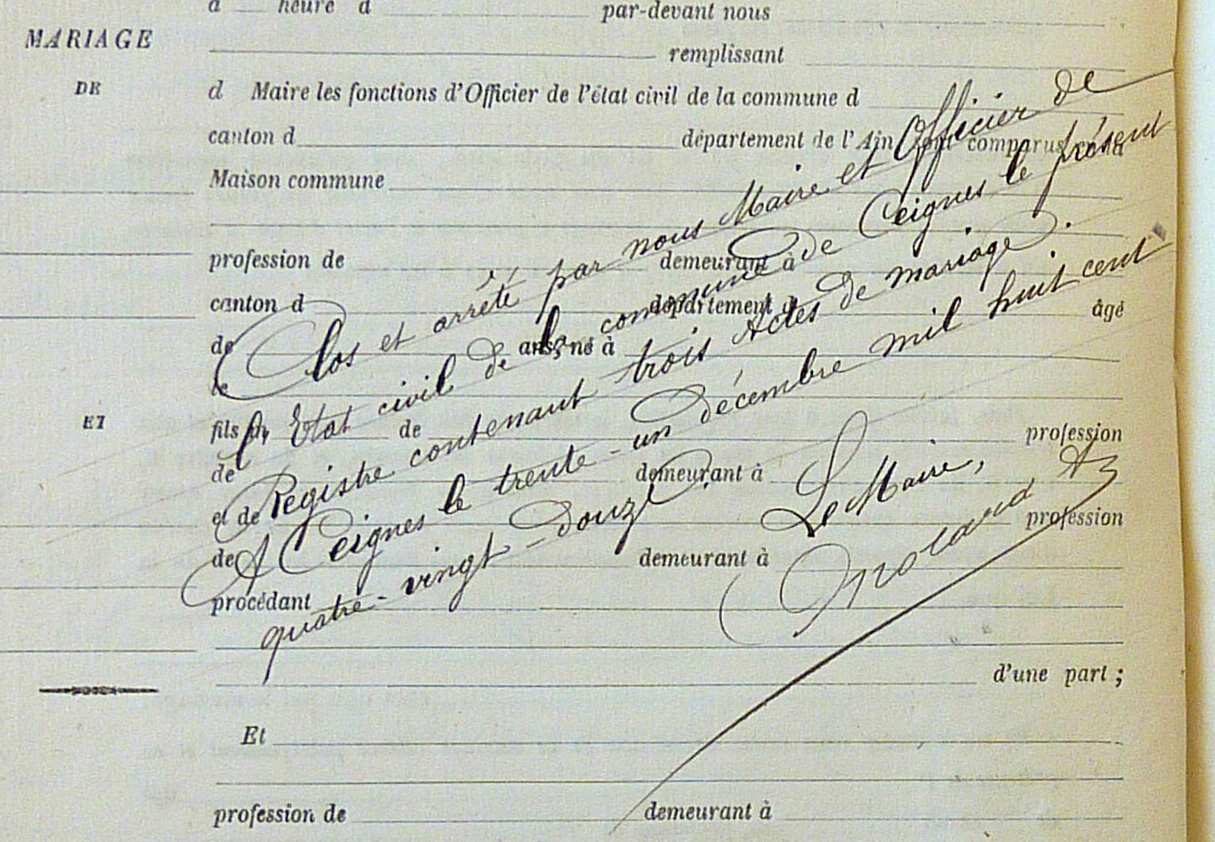 d heure d par-devant nous
MARIAGE
remplissant
DE
d Maire les fonctions d'Officier de l'état civil de la commune d
canton d département de l'Ain sont comparus en la
Maison commune
profession de demeurant à
canton d département d
de ans, né à âgé
le
ET
fils de de profession
de demeurant à
et de profession
de demeurant à
procédant
d'une part ;
Et
profession de demeurant à
Clos et arrêté par nous Maire et Officier de
l'Etat civil de la commune de Ceignes le présent
Registre contenant trois Actes de mariage.
A Ceignes le trente-un décembre mil huit cent
quatre-vingt-douze.
Le Maire,